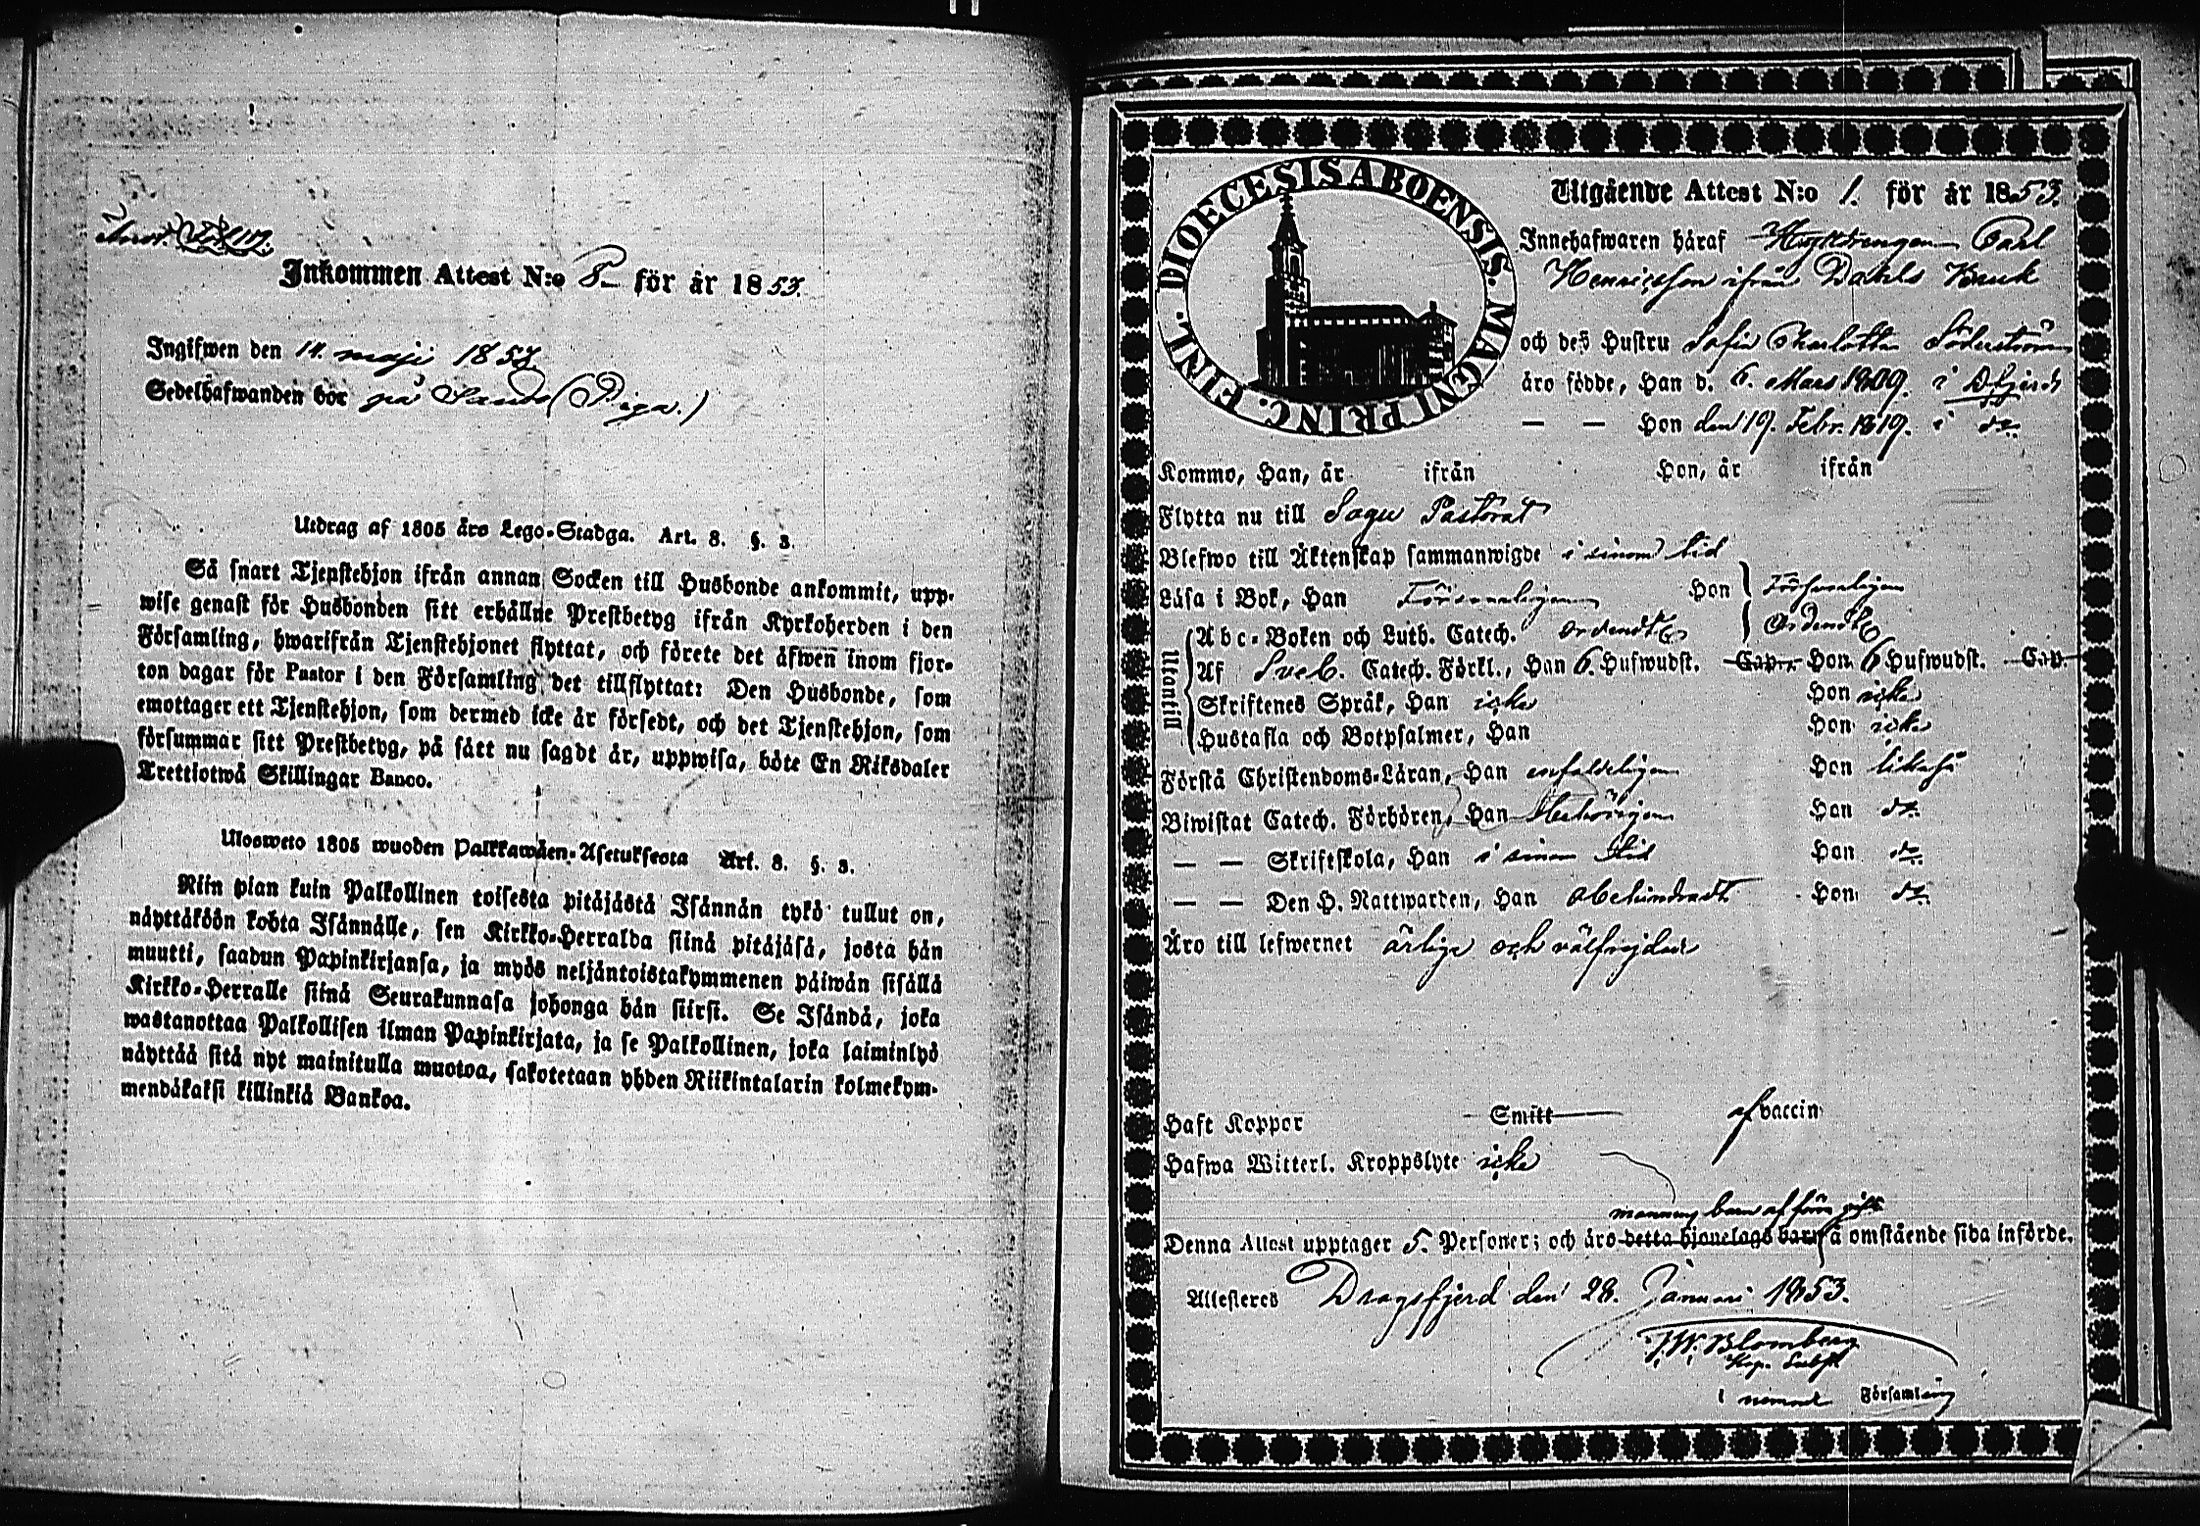 Inkommen Attest N:o 8 för år 1853.
Ingifwen den 14. maji 1853.
Sedelhafwanden bor på Sando (Piga.)
Utdrag af 1805 års Lego-Stadga. Art. 8. §. 3.
Så snart Tjenstehjon ifrån annan Socken till Husbonde ankommit, upp-
wise genast för Husbonden sitt erhållne Prestbetyg ifrån Kyrkoherden i den
Församling, hwarifrån Tjenstehjonet flyttat, och förete det äfwen inom fjor-
ton dagar för Pastor i den Församling det tillflyttat: Den Husbonde, som
emottager ett Tjenstehjon, som dermed icke är försedt, och det Tjenstehjon, som
försummar sitt Prestbetyg, på sätt nu sagdt är, uppwisa, böte En Riksdaler
Trettiotwå Skillingar Banco.
Ulosweto 1805 wuoden Palkkawäen-Asetuksesta Art. 8. §. 3.
Niin pian kuin Palkollinen toisesta pitäjästä Isännän tykö tullut on,
näyttäköön kohta Isännälle, sen Kirkko-Herralda siinä pitäjäsä, josta hän
muutti, saadun Papinkirjansa, ja myös neljäntoistakymmenen päiwän sisällä
Kirkko-Herralle siinä Seurakunnasa johonga hän siirsi. Se Isändä, joka
wastanottaa Palkollisen ilman Papinkirjata, ja se Palkollinen, joka laiminlyö
näyttää sitä nyt mainitulla muotoa, sakotetaan yhden Riikintalarin kolmekym-
mendäkaksi killinkiä Bankoa.
DIOECESIS ABOENSIS. MAGNI PRINC. FINL.
Utgående Attest N:o 1. för år 1853.
Innehafwaren häraf Carl
Henricsson ifrån Dahls Bruk
och des Hustru Sofia Charlotta Söderström
äro födde, Han d. 6. Mars 1809. i Dfjerd
— — Hon den 19. Febr. 1819. i do
Kommo, Han, år ifrån Hon, år ifrån
Flytta nu till Sagu Pastorat
Blefwo till Äktenskap sammanwigde i sinom tid
Läsa i Bok, Han Försvarligen Hon Försvarligen
Utontill
Abc-Boken och Luth. Catech. Ordentl. Ordentl.
Af Sveb. Catech. Förkl., Han 6. Hufwudst. Cap. Hon 6 Hufwudst. Cap.
Skriftenes Språk, Han icke Hon icke
Hustafla och Botpsalmer, Han Hon icke
Förstå Christendoms-Läran, Han enfaldeligen Hon likaså
Biwistat Catech. Förhören, Han behörigen Hon do
— — Skriftskola, Han i sinom tid Hon do
— — Den H. Nattwarden, Han obehindradt Hon do
Äro till lefwernet ärlige och välfrejdade
Haft Koppor Smitt af vaccin
Hafwa Witterl. Kroppslyte icke
mannens barn af förra gifte
Denna Attest upptager 5. Personer; och äro detta hjonelags barn å omstående sida införde.
Attesteres Dragsfjerd den 28. Januari 1853.
J.W. Blomberg
Kap. Subst.
i nämnde Församling